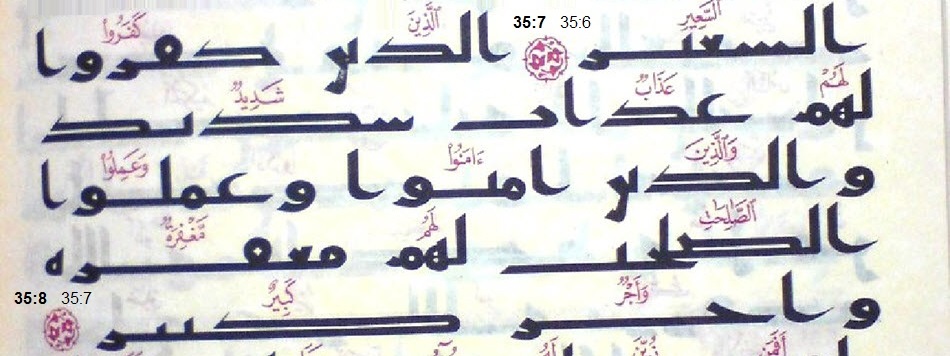 السَّعِيرِ 35:7 35:6 ٱلَّذِينَ كَفَرُوا۟
السعير الذين كفروا
لَهُمْ عَذَابٌ شَدِيدٌ
لهم عذاب شديد
وَٱلَّذِينَ ءَامَنُوا۟ وَعَمِلُوا۟
والذين امنوا وعملوا
ٱلصَّٰلِحَٰتِ لَهُم مَّغْفِرَةٌ
الصلحت لهم مغفره
وَأَجْرٌ كَبِيرٌ 35:8 35:7
واجر كبير
أَفَمَن زُيِّنَ